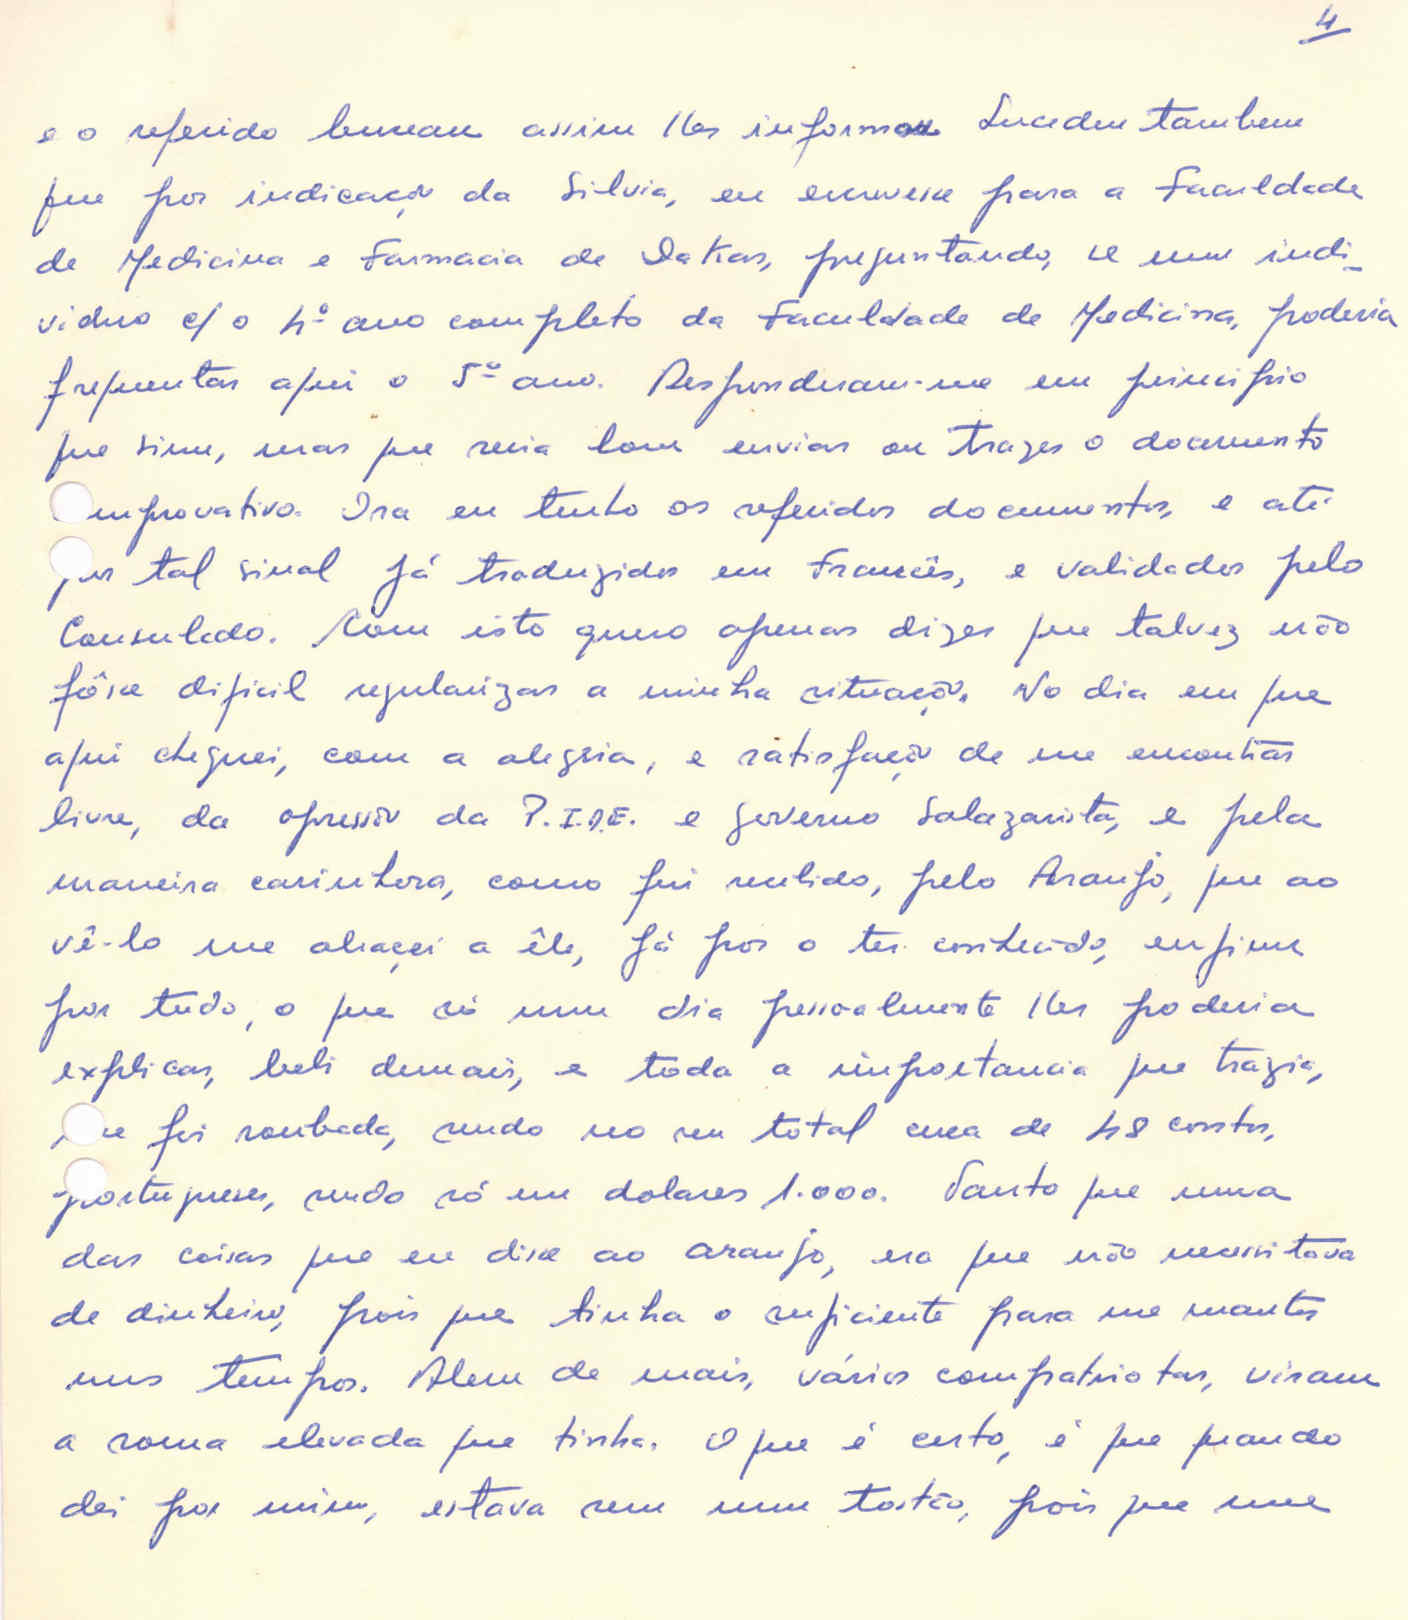 4
e o referido bureau assim lhes informou. Sucedeu tambem
que por indicação da Silvia, eu escrevesse para a Faculdade
de Medicina e Farmacia de Dakar, preguntando, se um indi-
viduo c/ o 4º ano completo da Faculdade de Medicina, poderia
frequentar aqui o 5º ano. Responderam-me em principio
que sim, mas que seria bom enviar ou trazer o documento
comprovativo. Ora eu tenho os referidos documentos, e até
por tal sinal já traduzidos em Francês, e validados pelo
Consulado. Com isto quero apenas dizer que talvez não
fôsse dificil regularizar a minha situação. No dia em que
aqui cheguei, com a alegria, e satisfação de me encontrar
livre, da opressão da P.I.D.E. e governo Salazarista, e pela
maneira carinhosa, como fui recebido, pelo Araujo, que ao
vê-lo me abraçei a êle, já por o ter conhecido, enfim
por tudo, o que só um dia pessoalmente lhes poderia
explicar, bebi demais, e toda a importancia que trazia,
me foi roubada, sendo no seu total cerca de 48 contos,
portugueses, sendo só em dolares 1.000. Tanto que uma
das coisas que eu disse ao Araujo, era que não necessitava
de dinheiro, pois que tinha o suficiente para me manter
uns tempos. Alem de mais, vários compatriotas, viram
a soma elevada que tinha. O que é certo, é que quando
dei por mim, estava sem um tostão, pois que me